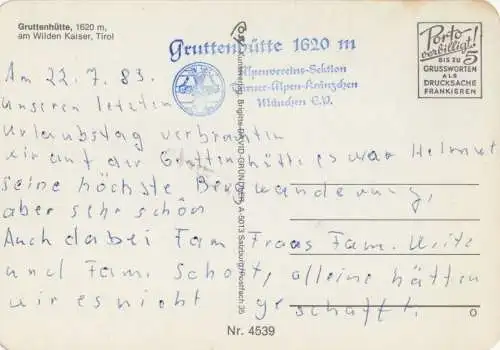 Gruttenhütte, 1620 m,
am Wilden Kaiser, Tirol
Gruttenhütte 1620 m
Alpenvereins-Sektion
Turner-Alpen-Kränzchen
München E.V.
Porto
verbilligt!
BIS ZU 5
GRUSSWORTEN
ALS
DRUCKSACHE
FRANKIEREN
Am 22.7.83.
unseren letzten
Urlaubstag verbrachten
wir auf der Gruttenhütte es war Helmut
seine höchste Bergwanderung,
aber sehr schön
Auch dabei Fam Fraas Fam.
und Fam. Schott, alleine hätten
wir es nicht geschafft.
Brigitte-DAVID-GRÜNDLER, A-5013 Salzburg/Postfach 35
Nr. 4539
O